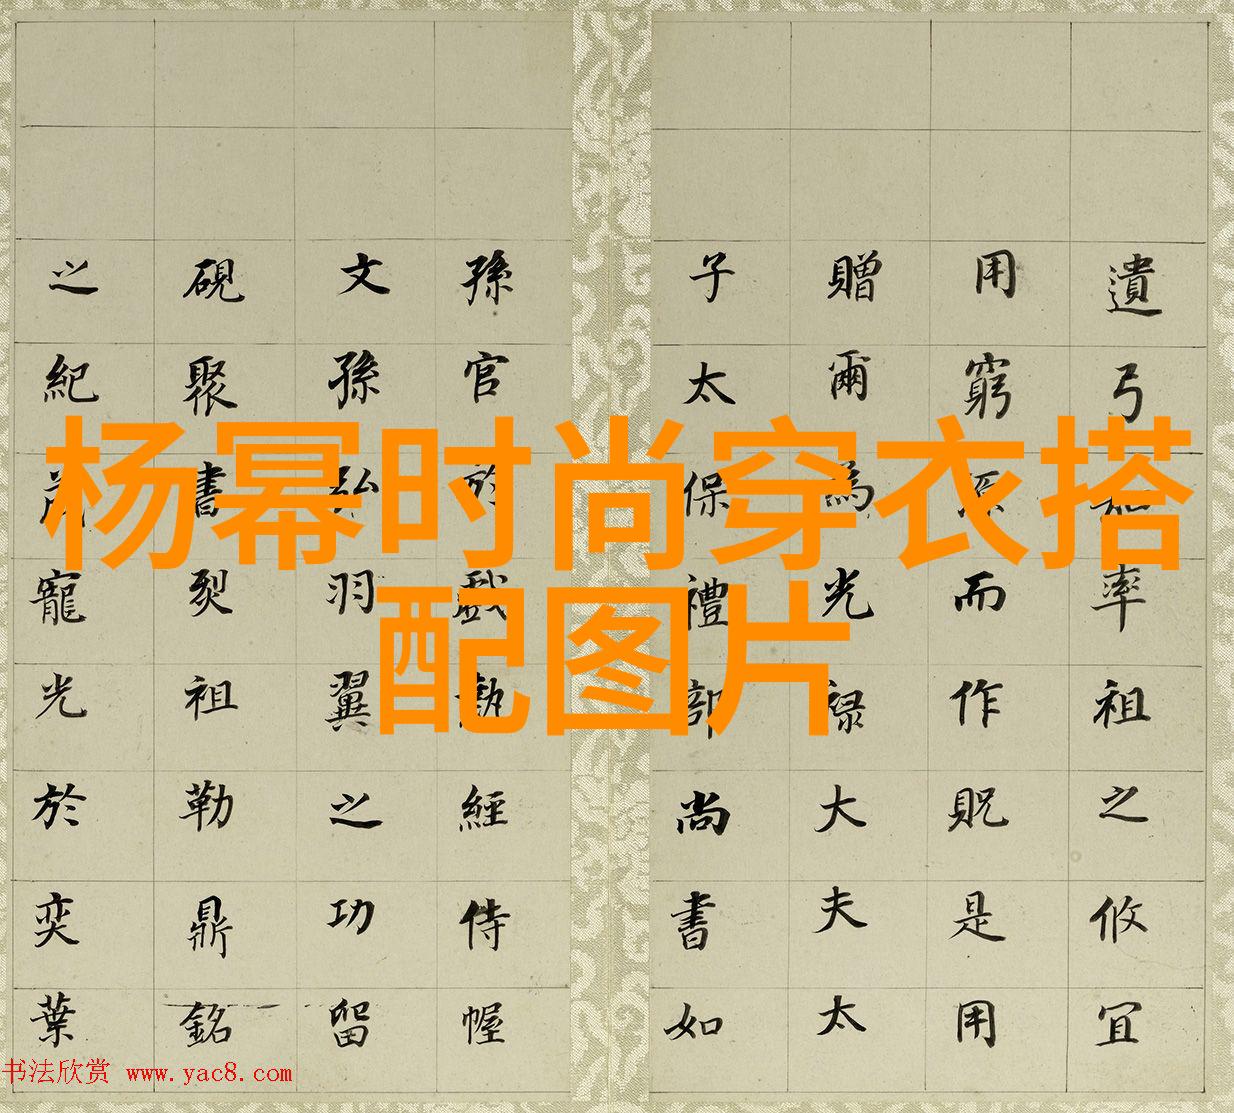 杨幂时尚穿衣搭
配图片
遺弓率祖之攸宜
用窮源而作貺是用
贈爾為光祿大夫太
子太保禮部尚書如
孫官於戲執經侍幄
文孫弘羽翼之功留
硯聚書裂祖勒鼎銘
之紀茂寵光於奕葉
书法欣赏 www.yac8.com